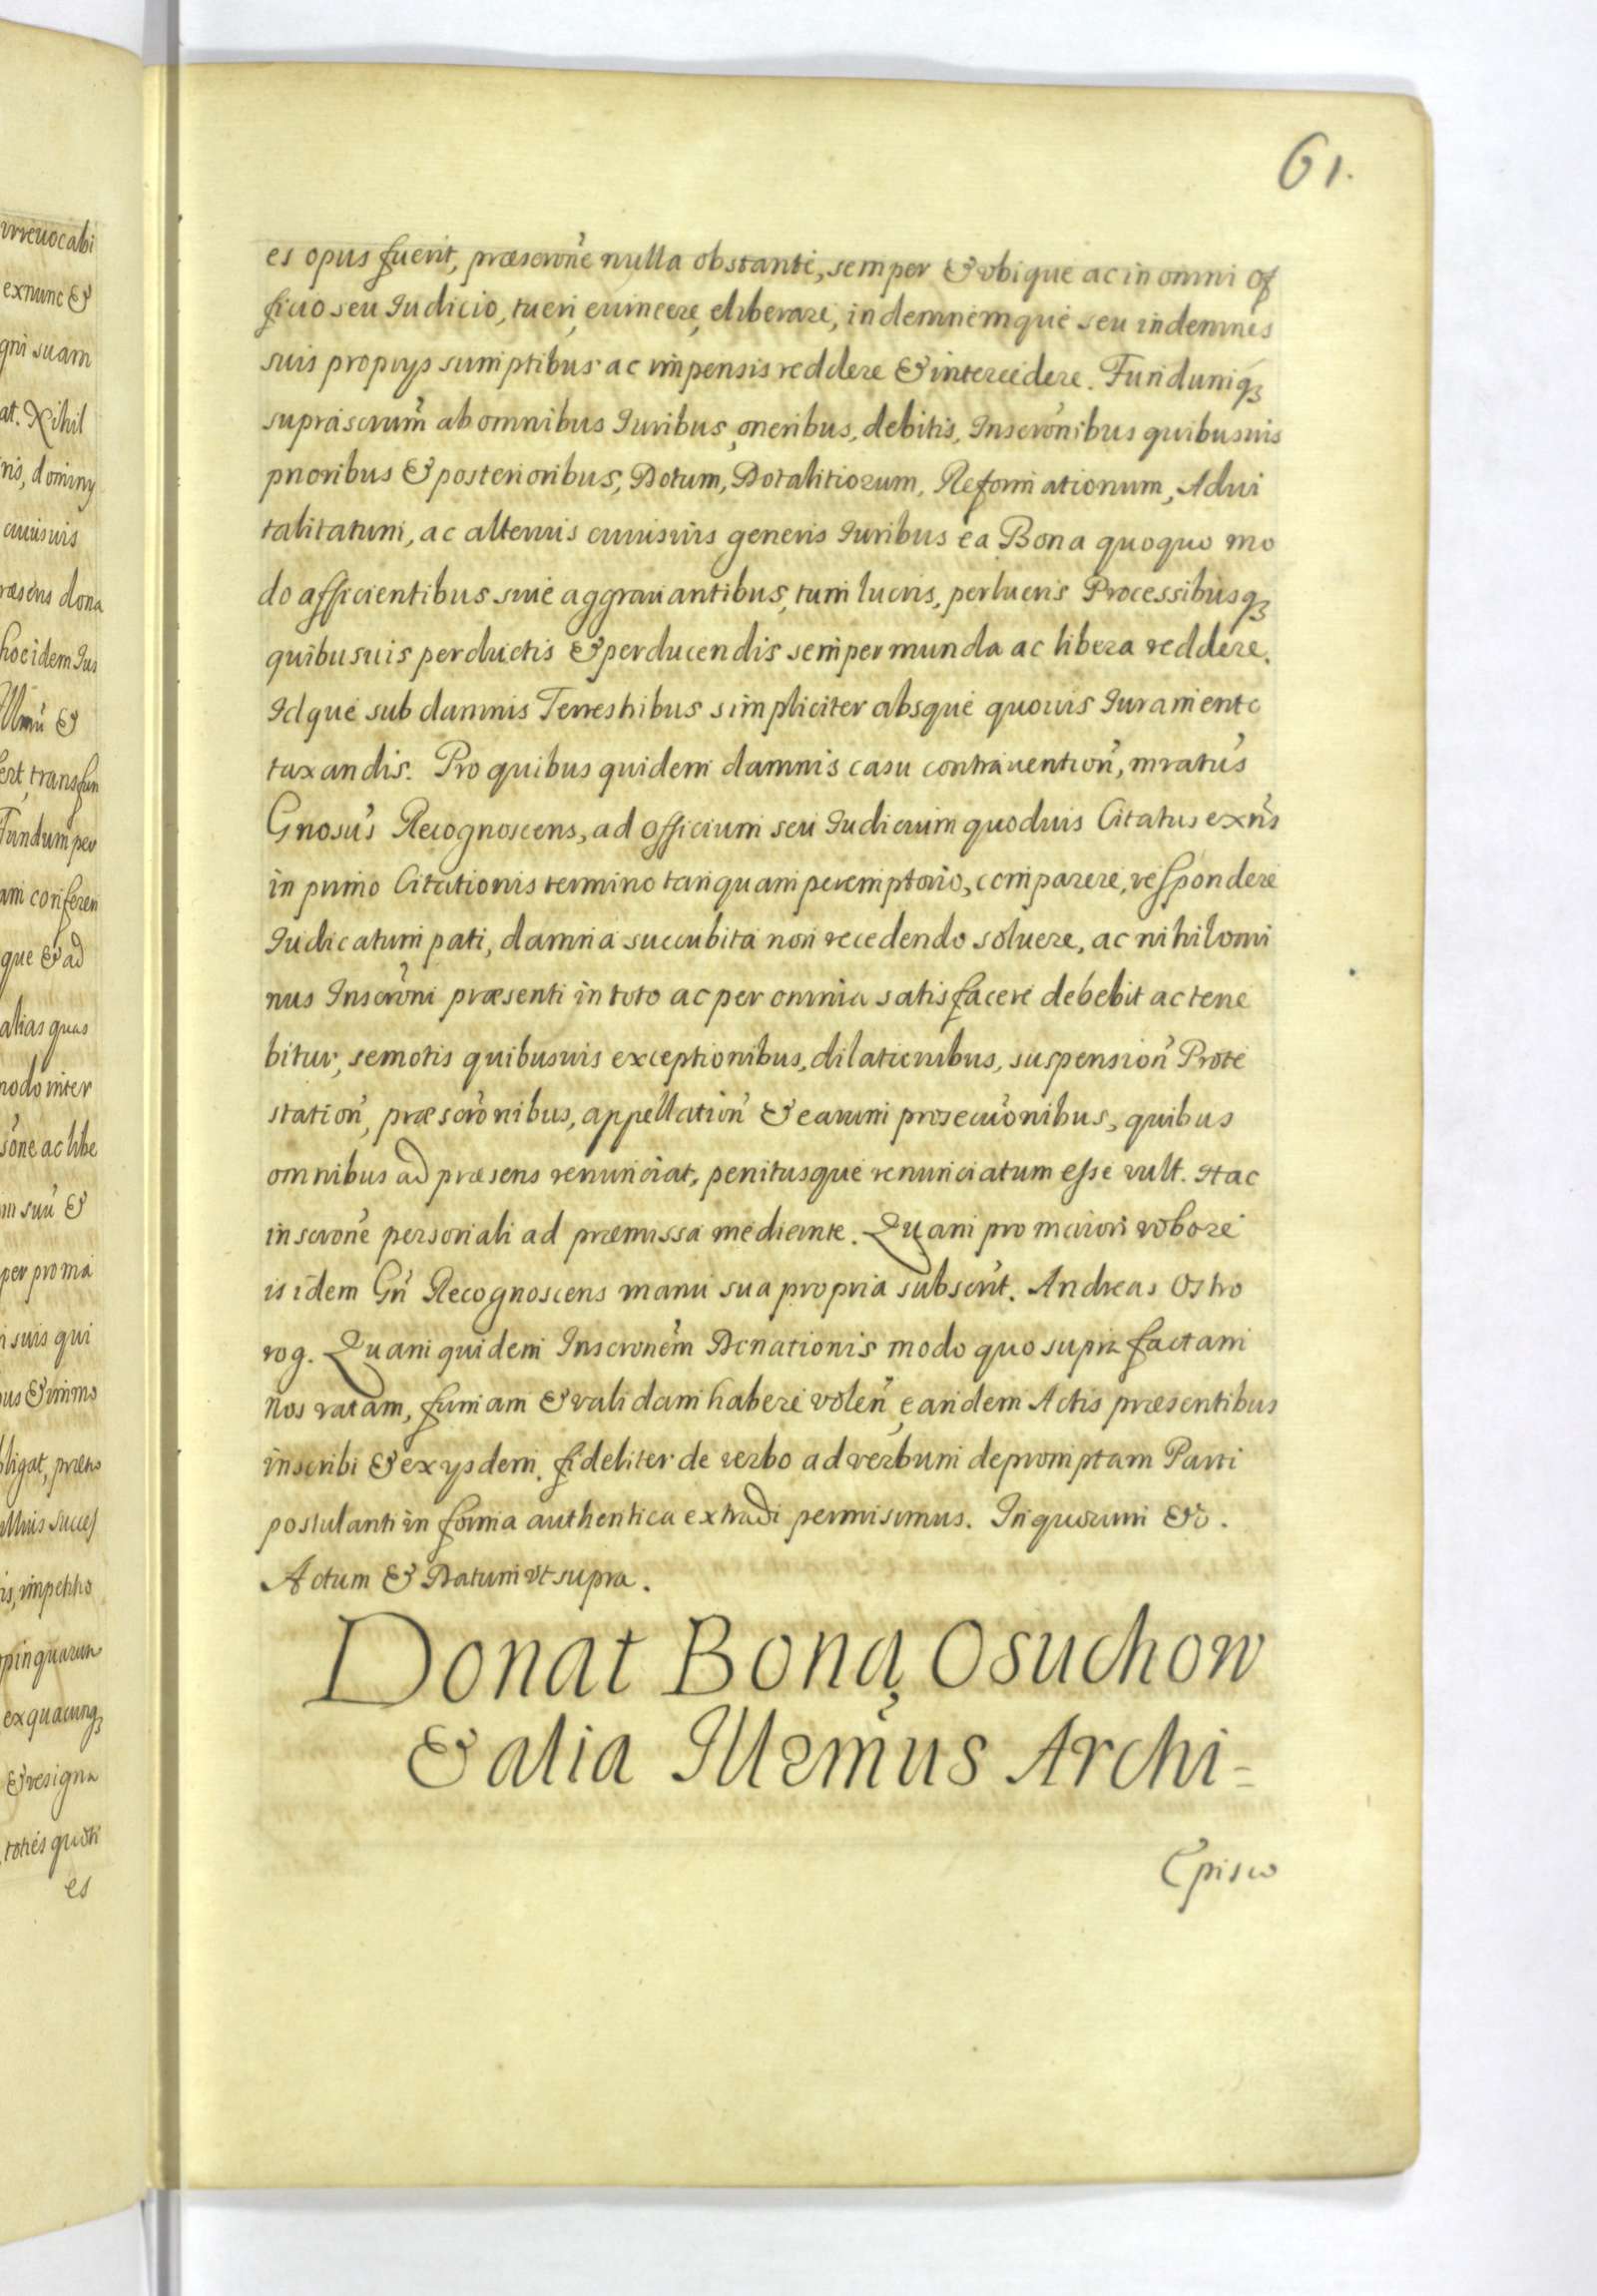 irreuocabi
exnunc &
gni suam
at. Nihil
nis, dominy
cuiusuis
ræsens dona
hoc idem Ius
Illmũ &
ert, transfun
Fundum per
am conferen
que & ad
alias quas
modo inter
sone ac libe
m suũ &
per pro ma
i suis qui
us & immo
bligat, præns
illius succes
is, impetito
pinquarum
ex quacunqȝ
& resigna
toties quoti
es
61.
es opus fuerit, præscrõne nulla obstante, semper & vbique ac in omni of
ficio seu Iudicio, tueri, euincere, eliberare, indemnemque seu indemnes
suis proprys sumptibus ac impensis reddere & intercedere. Fundumqȝ
suprascrum̃ ab omnibus Iuribus, oneribus, debitis, Inscrõnibus quibusuis
prioribus & posterioribus, Dotum, Dotalitiorum, Reformationum, Adui
talitatum, ac alterius cuiusuis generis Iuribus ea Bona quoquo mo
do afficientibus siue aggrauantibus, tum lucris, perlucris Processibusqȝ
quibusuis perductis & perducendis semper munda ac libera reddere.
Idque sub damnis Terrestribus simpliciter absque quouis Iuramento
taxandis. Pro quibus quidem damnis casu contrauention̄, mratus̃
Gnosus̃ Recognoscens, ad officium seu Iudicium quoduis Citatus exñs
in primo Citationis termino tanquam peremptorio, comparere, respondere
Iudicatum pati, damna succubita non recedendo soluere, ac nihilomi
nus Inscrõni præsenti in toto ac per omnia satisfacere debebit ac tene
bitur, semotis quibusuis exceptionibus, dilationibus, suspension̄ Prote
station̄, præscrõnibus, appellation̄ & earum prosecuõnibus, quibus
omnibus ad præsens renunciat, penitusque renunciatum esse vult. Hac
inscrõne personali ad præmissa mediante. Quam pro maiori robore
is idem Gñ Recognoscens manu sua propria subscrit̃. Andreas Ostro
rog. Quam quidem Inscronem̃ Donationis modo quo supra factam
Nos ratam, firmam & validam habere volen̄, eandem Actis præsentibus
inscribi & ex ysdem fideliter de verbo ad verbum depromptam Parti
postulanti in forma authentica extradi permisimus. In quorum &c.
Actum & Datum vt supra.
Donat Bona, Osuchow
& alia Illrmũs Archi=
Episco